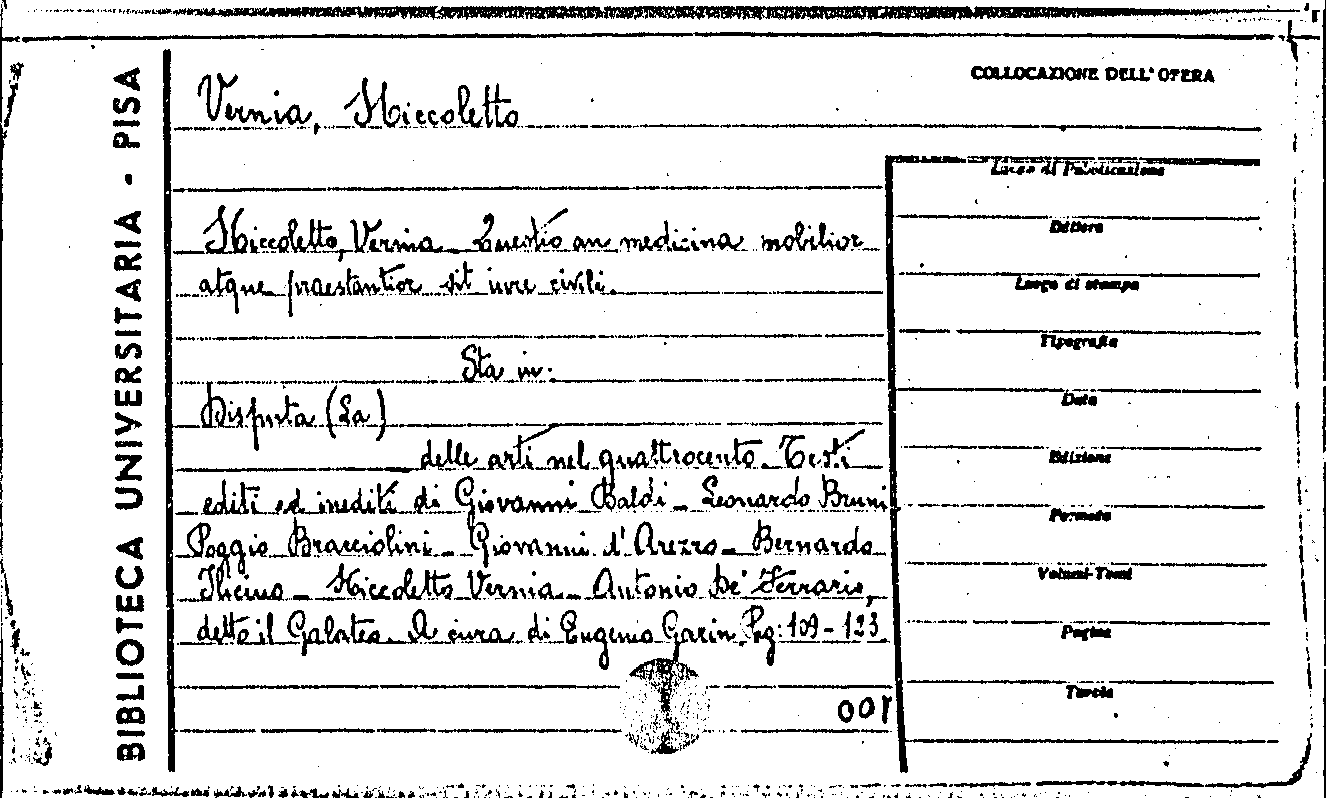 BIBLIOTECA UNIVERSITARIA - PISA
COLLOCAZIONE DELL'OPERA
Vernia, Niccoletto
Niccoletto, Vernia_ Questio an medicina nobilior
atque praestantior sit iure civili.
Sta in:
Disputa (La)
delle arti nel quattrocento. Testi
editi ed inediti di Giovanni Baldi_ Leonardo Bruni
Poggio Bracciolini_ Giovanni d'Arezzo_ Bernardo
Ilicino_ Niccoletto Vernia_ Antonio De' Ferraris,
detto il Galateo. A cura di Eugenio Garin. Pag: 109-123
001
Luogo di Pubblicazione
Editore
Luogo di stampa
Tipografia
Data
Edizione
Formato
Volumi-Tomi
Pagine
Tavole